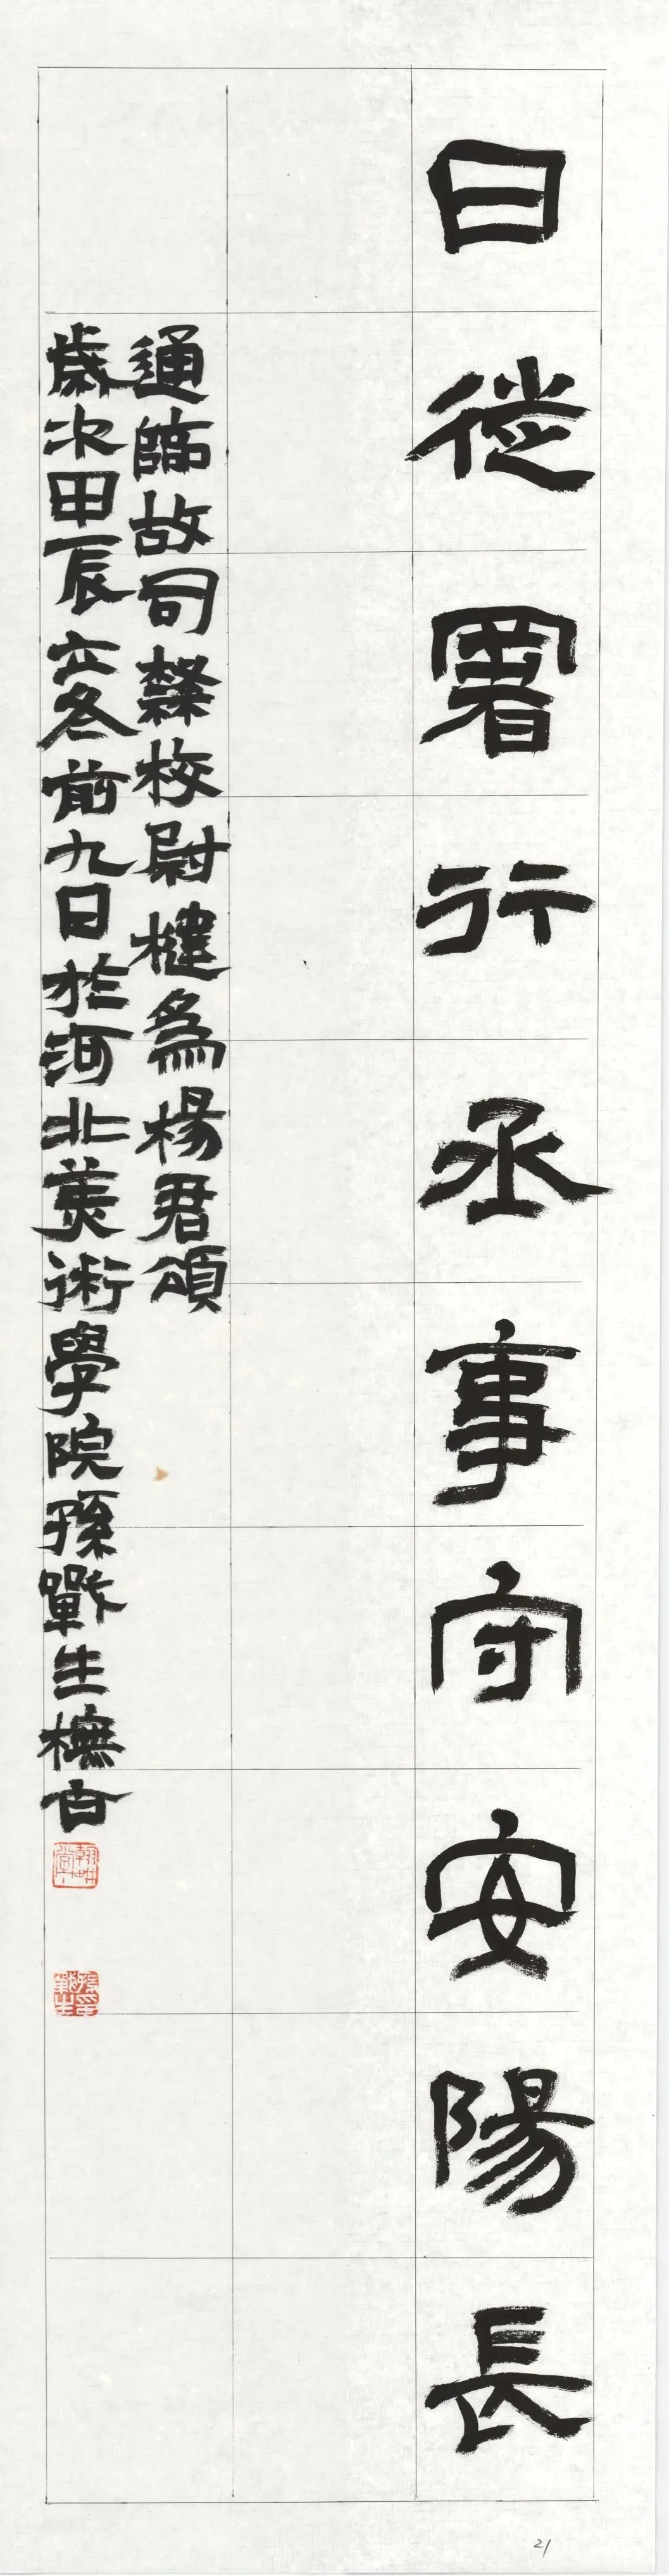 曰徙署行丞事守安陽長
通臨故司隸校尉楗為楊君頌
歲次甲辰立冬前九日於河北美術學院孫戰生橅古
21